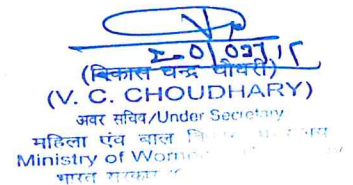 (विकास चन्द्र चौधरी)
(V. C. CHOUDHARY)
अवर सचिव/Under Secretary
महिला एंव बाल
Ministry of
भारत सरकार